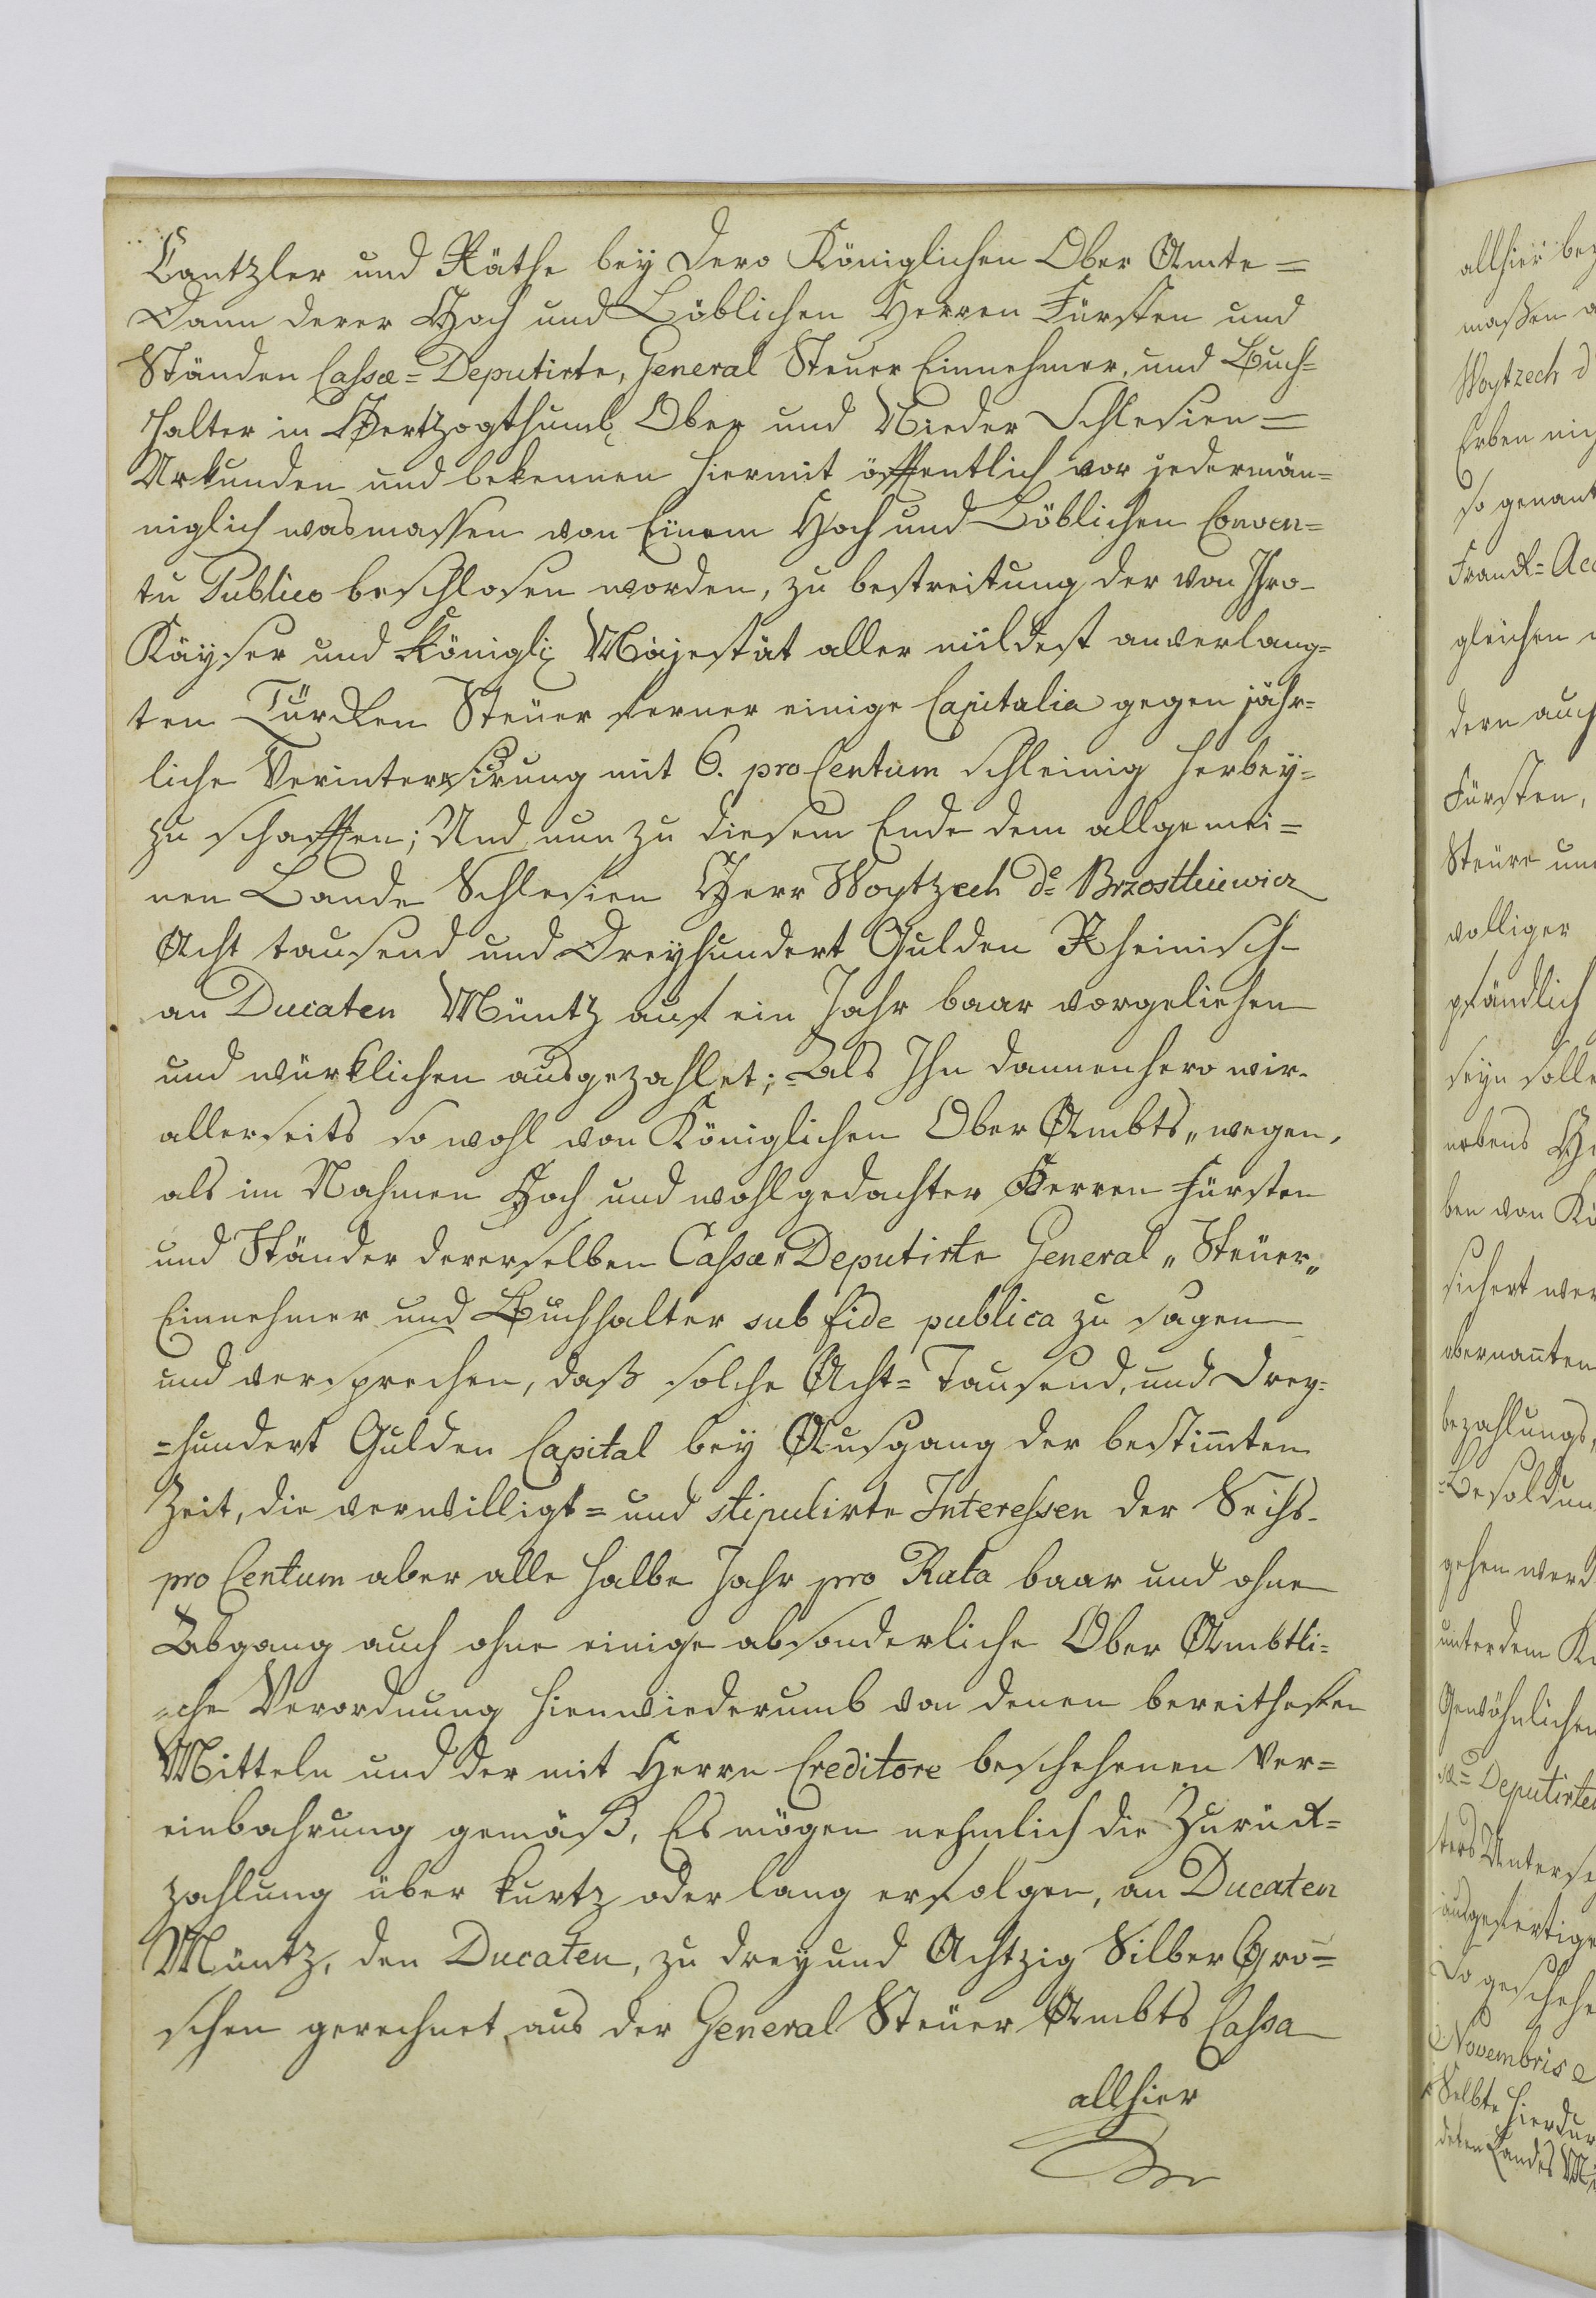 Cantzler und Räthe bey dero Königlichen Ober Amte=
Dann derer Hoch und Löblichen Herren Fürsten und
Ständen Cassæ=Deputirte, General Steuer Einnehmer, und Buch=
halter in Hertzogthumb Ober und Nieder Schlesien=
Urkunden und bekennen hiermit öffentlich vor jedermän=
niglich wasmassen von Einem Hoch und Löblichen Conven=
tu Publico beschlosen worden, zu bestreitung der von Ihro
Käyser und Königl: Mäjestät aller mildest anverlang=
ten Türcken Steuer ferner einige Capitalia gegen jähr=
liche Verinteressirung mit 6. pro Centum schleinig herbey=
zu schaffen; Und nun zu diesem Ende dem allgemei=
nen Lande Schlesien Herr Woytzech de
Acht tausend und Dreyhundert Gulden Rheinisch
an Ducaten Müntz auf ein Jahr baar vorgeliehen
und würklichen ausgezahlet; Als Ihn dannenhero wir
allerseits so wohl von Königlichen Ober Ambts„ wegen,
als im Nahmen Hoch und wohlgedachter Herren Fürsten
und Ständer dererselben Cassæ„Deputirte General„Steuer„
Einnehmer und Buchhalter sub fide publica zu sagen
und versprechen, daß solche Acht=Tausend, und Drey=
=hundert Gulden Capital bey Ausgang der bestim̅ten
Zeit, die verwilligt= und stipulirte Interessen der Sechs
pro Centum aber alle halbe Jahr pro Rata baar und ohne
Abgang auch ohne einige absonderliche Ober Ambtli=
„che Verordnung hienwiederumb von denen bereithesten
Mitteln und der mit Herrn Creditore beschehenen Ver=
einbahrung gemäß, Es mögen nehmlich die Zurück=
zahlung über kurtz oder lang erfolgen, an Ducaten
Müntz, den Ducaten, zu drey und Achtzig Silber Gro=
schen gerechnet aus der General Steuer Ambts Cassa
allhier
allhier
maßen
Woytzech d
Erben
so genant
Franck=Acc
gleichen
dern auch
Fürsten,
Steure und
volliger
pfändlich
seyn solle
nebens
ben von Kö
sichert wer
obernan̅ten
bezahlungs
=Besoldun
gehen werd
unter dem
Gewöhnlichen
sæ=Deputirten
ters
ausgefertige
So geschehe
Novembris
Selbte hierdur
deten Landes